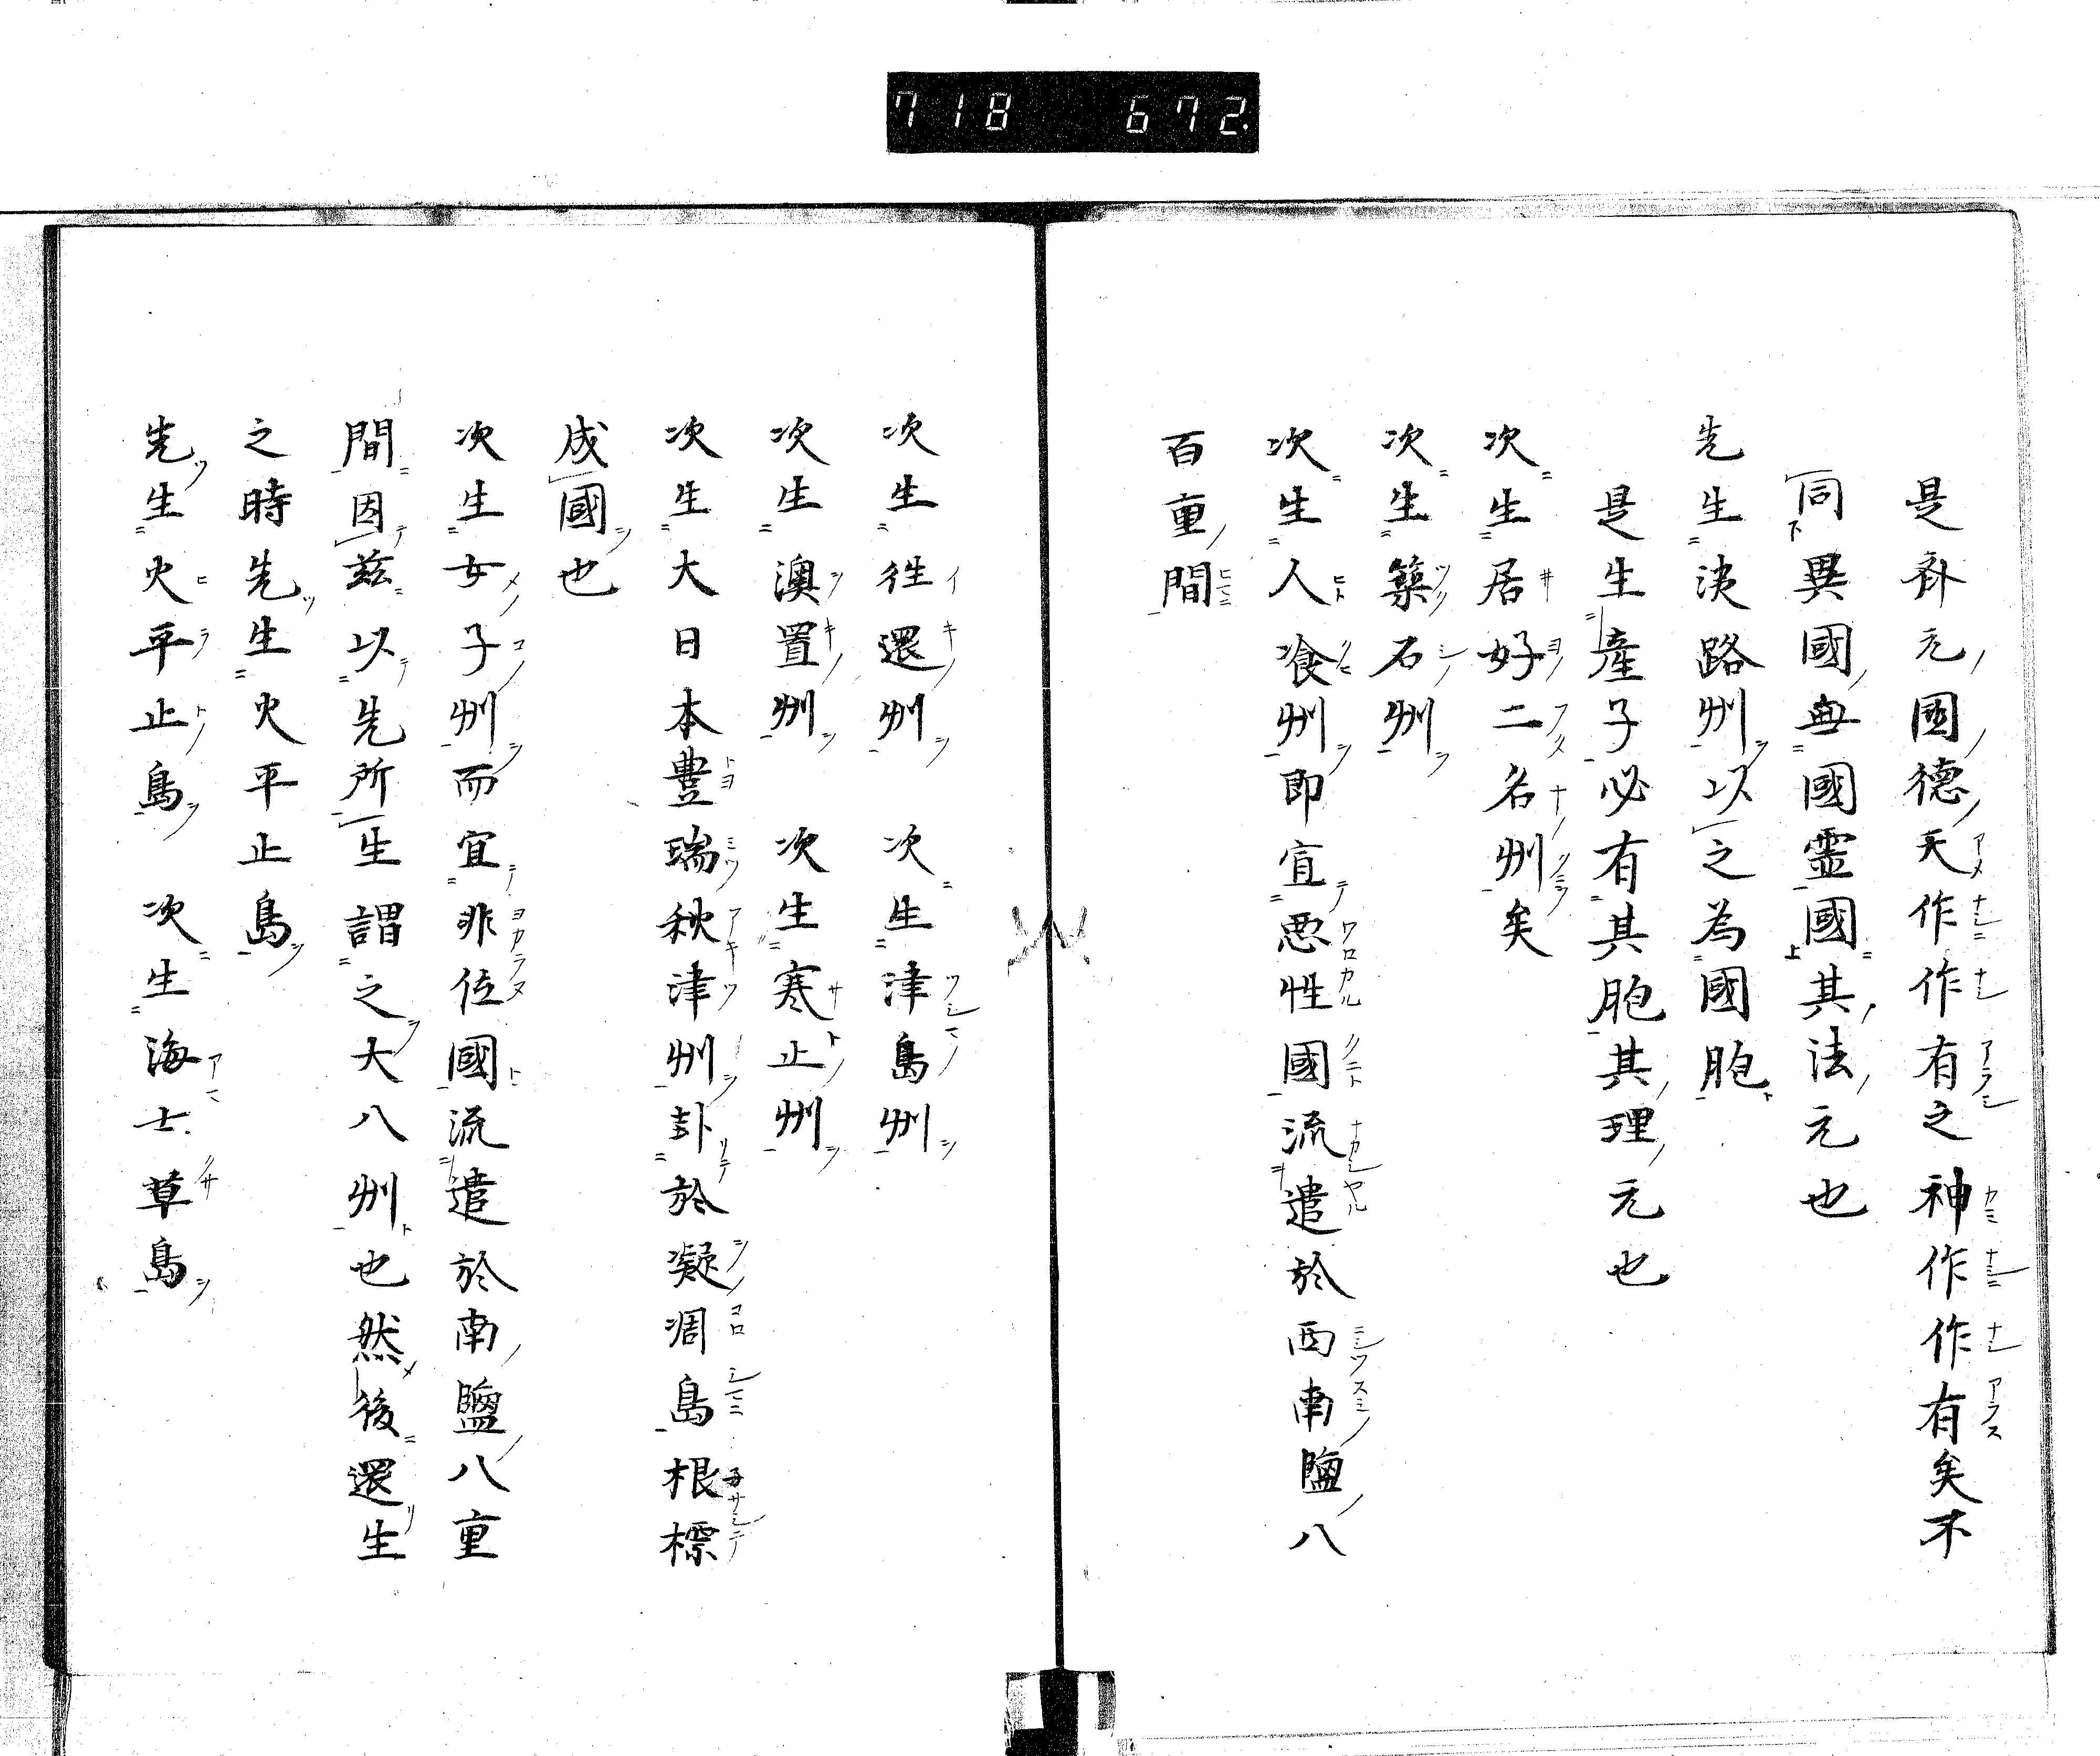 718 672.
是尒元國德天作作有之神作作有矣不
同異國無國靈國其法元也
先生淡路州以之為國胞
是生產子必有其胞其理元也
次生居好二名州矣
次生築石州
次生人飡州即宜悪性國流遣於西南鹽八
百重間
次生往還州 次生津島州
次生澳置州 次生寒止州
次生大日本豊瑞秋津州卦於凝凋島根標
成國也
次生女子州而宜非位國流遣於南鹽八重
間因茲以先所生謂之大八州也然後還生
之時先生火平止島
先生火平止島 次生海士草島